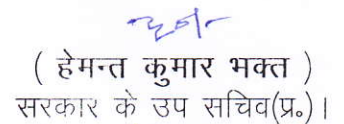 ( हेमन्त कुमार भक्त )
सरकार के उप सचिव(प्र०)।